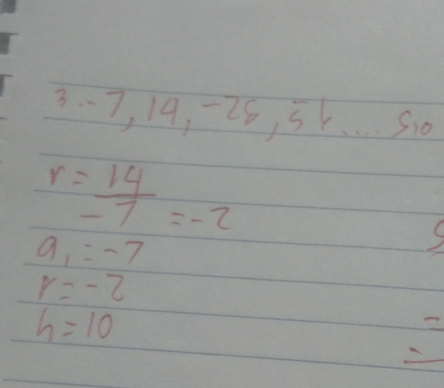 3. -7, 14, -28, 51 .... S10
r = 14
-7 = -2
a1 = -7
r = -2
n = 10